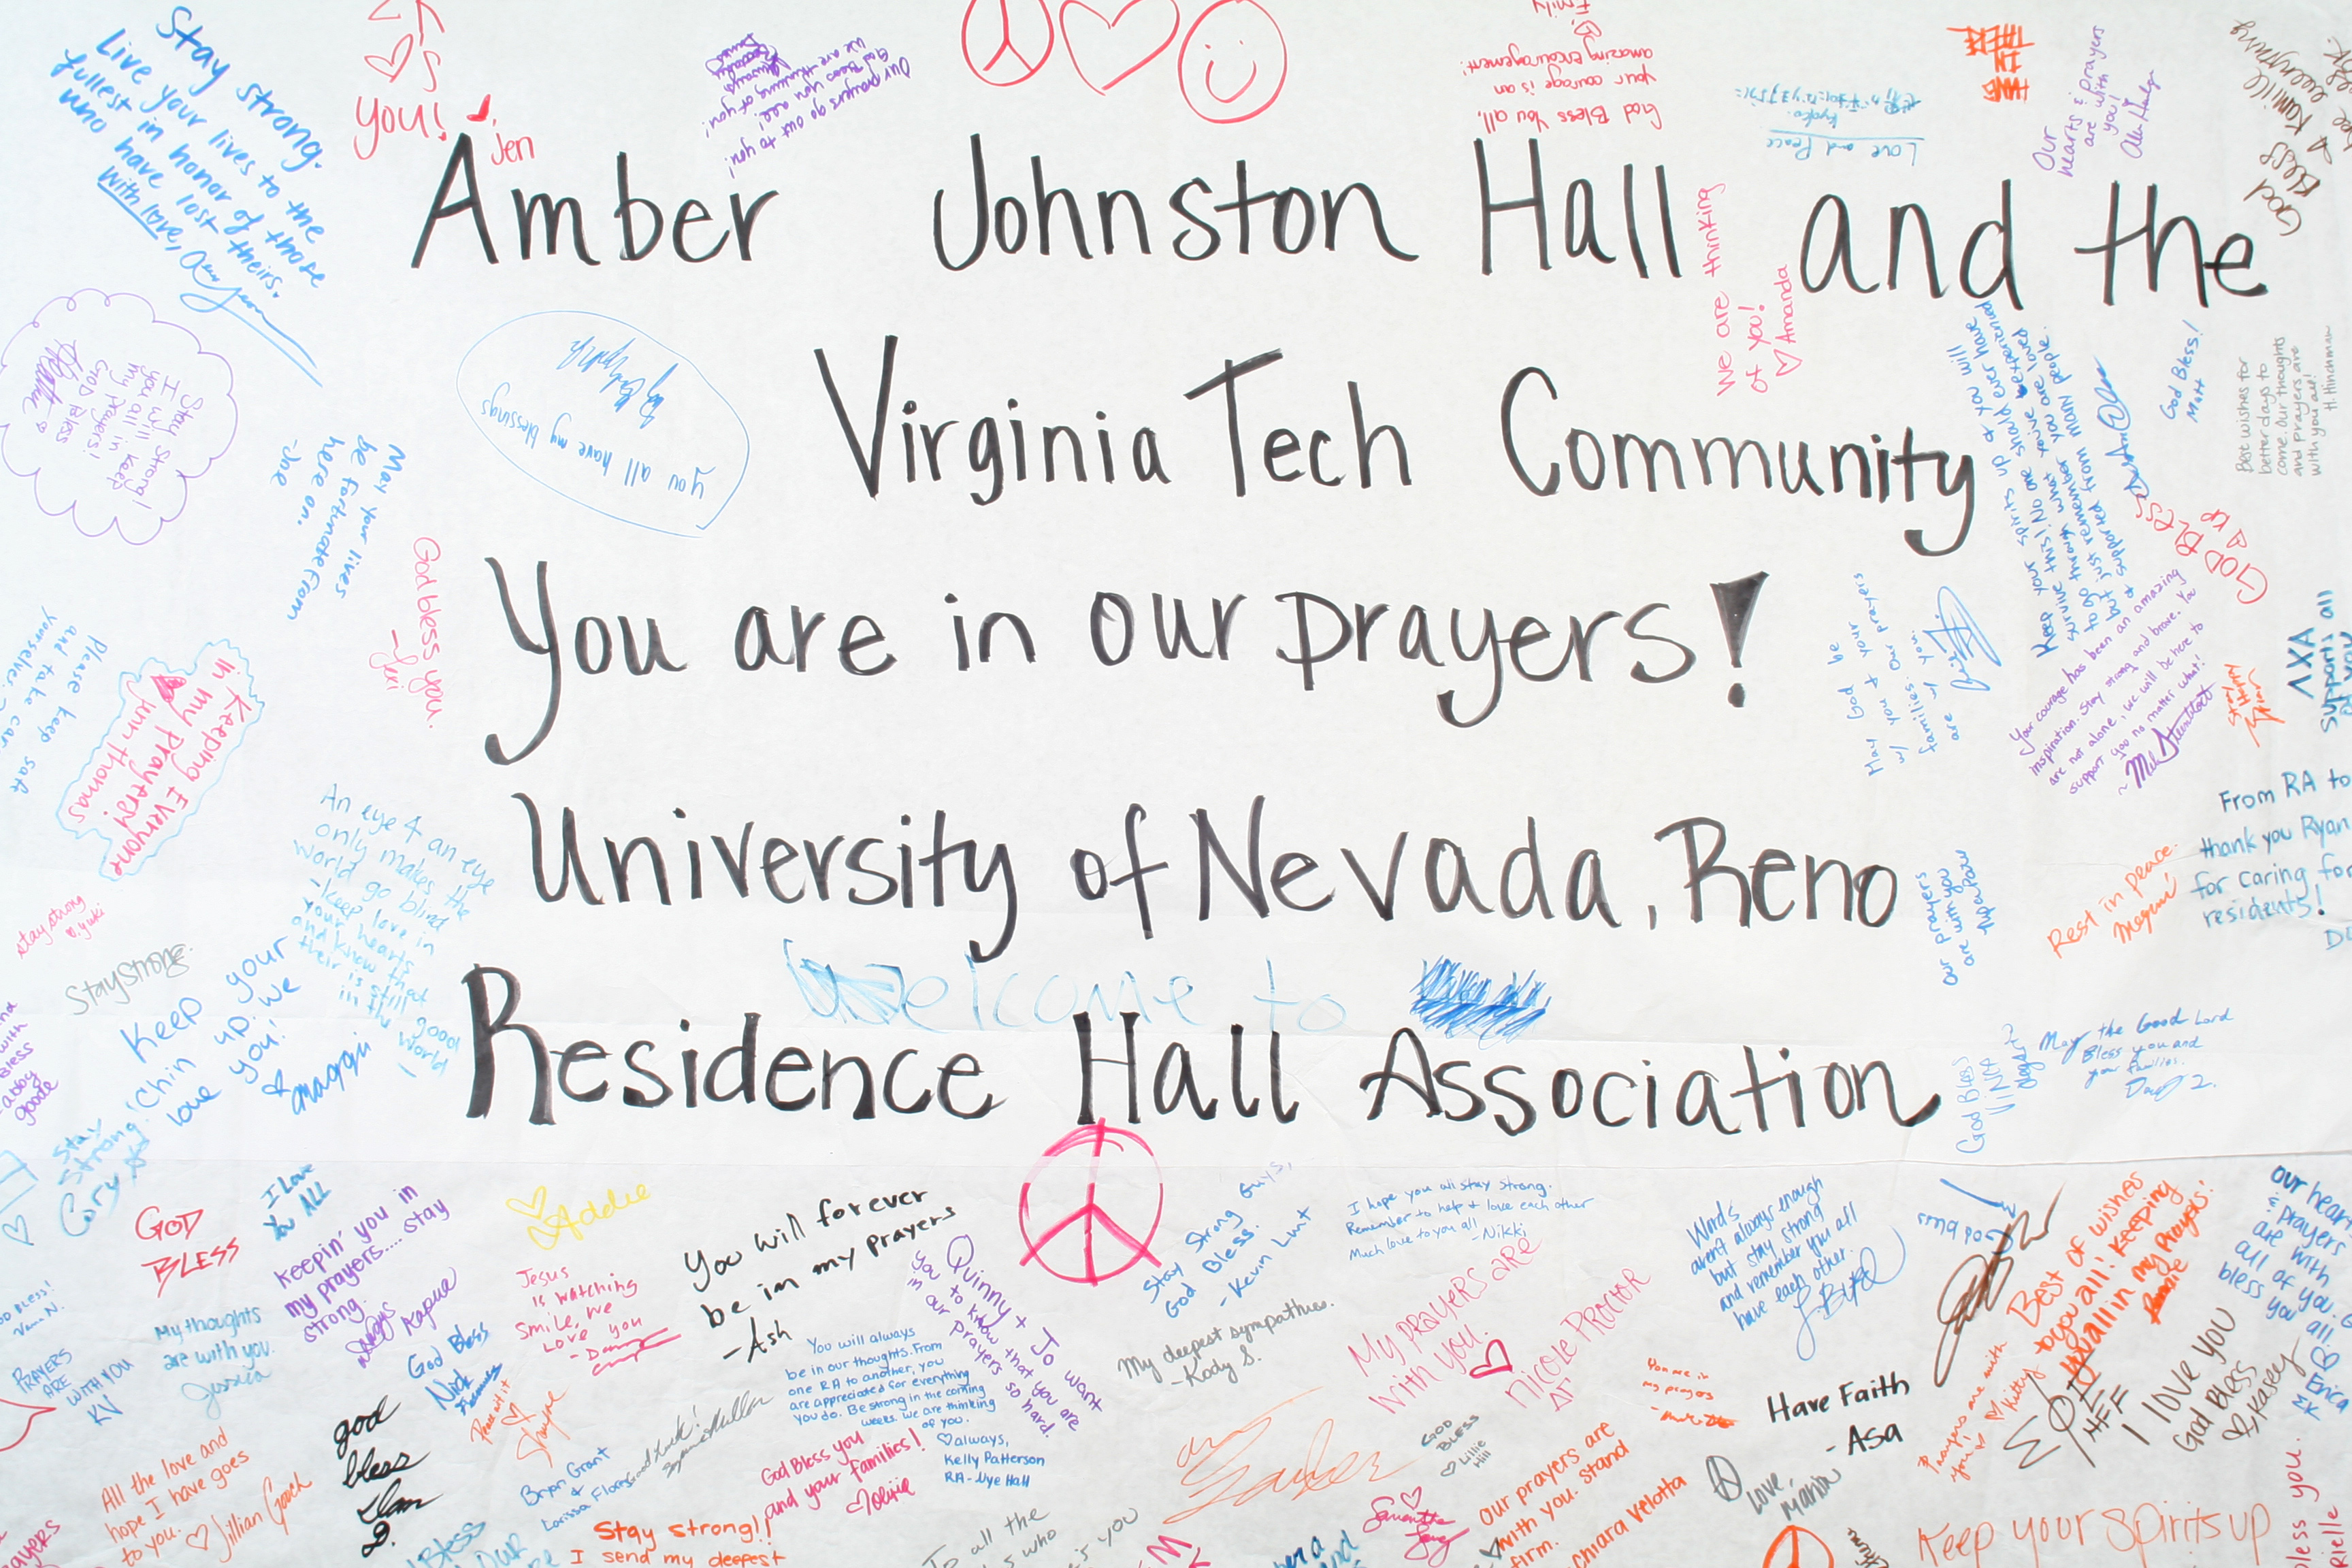 Stay strong.
Live your lives to the
fullest in honor of those
who have lost theirs.
With love,
♡s
you!
Jen
Our prayers go out to you!
God Bless you all!
We are thinking of you!
God Bless You all,
your courage is an
amazing encouragement!
Emily
Love and Peace
Kyoko
Our
hearts & prayers
are with
you!!
God
Bless
Kamille
everything
Amber Johnston Hall and the
We are thinking
of you!
♡ Amanda
Virginia Tech Community
You all have my blessings
Stay strong!
I will keep
you all in
my prayers!
GOD Bless
May your lives
be fortunate from
here on.
-Joe
Keep your spirits up & you will
survive this! No one should ever have
to go through what you've experienced
but just remember you are loved
& supported from many people.
God Bless!
Matt
Best wishes for
better days to
come. Our thoughts
and prayers are
with you all!
H. Hinchman
GOD BLESS
You are in our prayers!
God bless you.
-Lexi
Please keep safe
and take care
yourselves.
Keeping Everyone
in my Prayers!
Jenn thomas
May God be
w/ you & your
families. Our prayers
are w/ you.
Your courage has been an amazing
inspiration. Stay strong and brave. You
are not alone, we will be here to
support you no matter what!
ΛΧΑ
supports all
of you
University of Nevada, Reno
An eye 4 an eye
only makes the
world go blind
-keep love in
your hearts
and know that
their is still good
in the world
!
stay strong
♡. Yuki
Stay Strong.
Our prayers
are with you
From RA to
thank you Ryan
for caring for
residents!
Rest in peace.
Megan
Welcome to
Residence Hall Association
Keep your
chin up. we
love you!
♡ maggii
with
Bless
-abby
goode
Stay
Strong!
Cory
God Bless
May the Good Lord
Bless you and
your families.
GOD
BLESS
I Love
You ALL
Keepin' you in
my prayers.... stay
strong.
Kapua
♡ Addie
You will forever
be in my prayers
-Ash
Stay Strong Guys,
God Bless.
- Kevin Lunt
I hope you all stay strong.
Remember to help & love each other
Much love to you all
-Nikki
Words
aren't always enough
but stay strong
and remember you all
have each other.
God bless
Best of wishes
to you all! Keeping
you all in my Prayers!
our hearts
& prayers
are with
all of you.
bless you all.
♡ Erica
ΣΚ
My thoughts
are with you.
Jessica
Jesus
is watching
Smile, we
love you
Quinny + Jo want
you to know that you are
in our prayers so hard.
My deepest sympathies.
-Kody S.
My prayers are
with you.
♡ Nicole Proctor
ΔΓ
PRAYERS
ARE
WITH YOU
KV
God Bless
Nick
You will always
be in our thoughts. From
one RA to another, you
are appreciated for everything
you do. Be strong in the coming
weeks. we are thinking
of you.
♡ always,
Kelly Patterson
RA-Nye Hall
You are in
my prayers
Have Faith
-Asa
Prayers are with
you!
♡ Kitty
I love you
God Bless
♡, Kasey
god
bless
Bryan Grant
&
Larissa Flores
Good Luck!
God Bless you
and your families!
♡ Olivia
GOD
BLESS
♡ Lillie
Hill
All the love and
hope I have goes
to you. ♡ Jillian Gooch
Our prayers are
with you. Stand
firm.
Chiara Velotta
Love,
Maria
Stay strong!!
I send my deepest
Samantha
Keep your spirits up
Bless you.